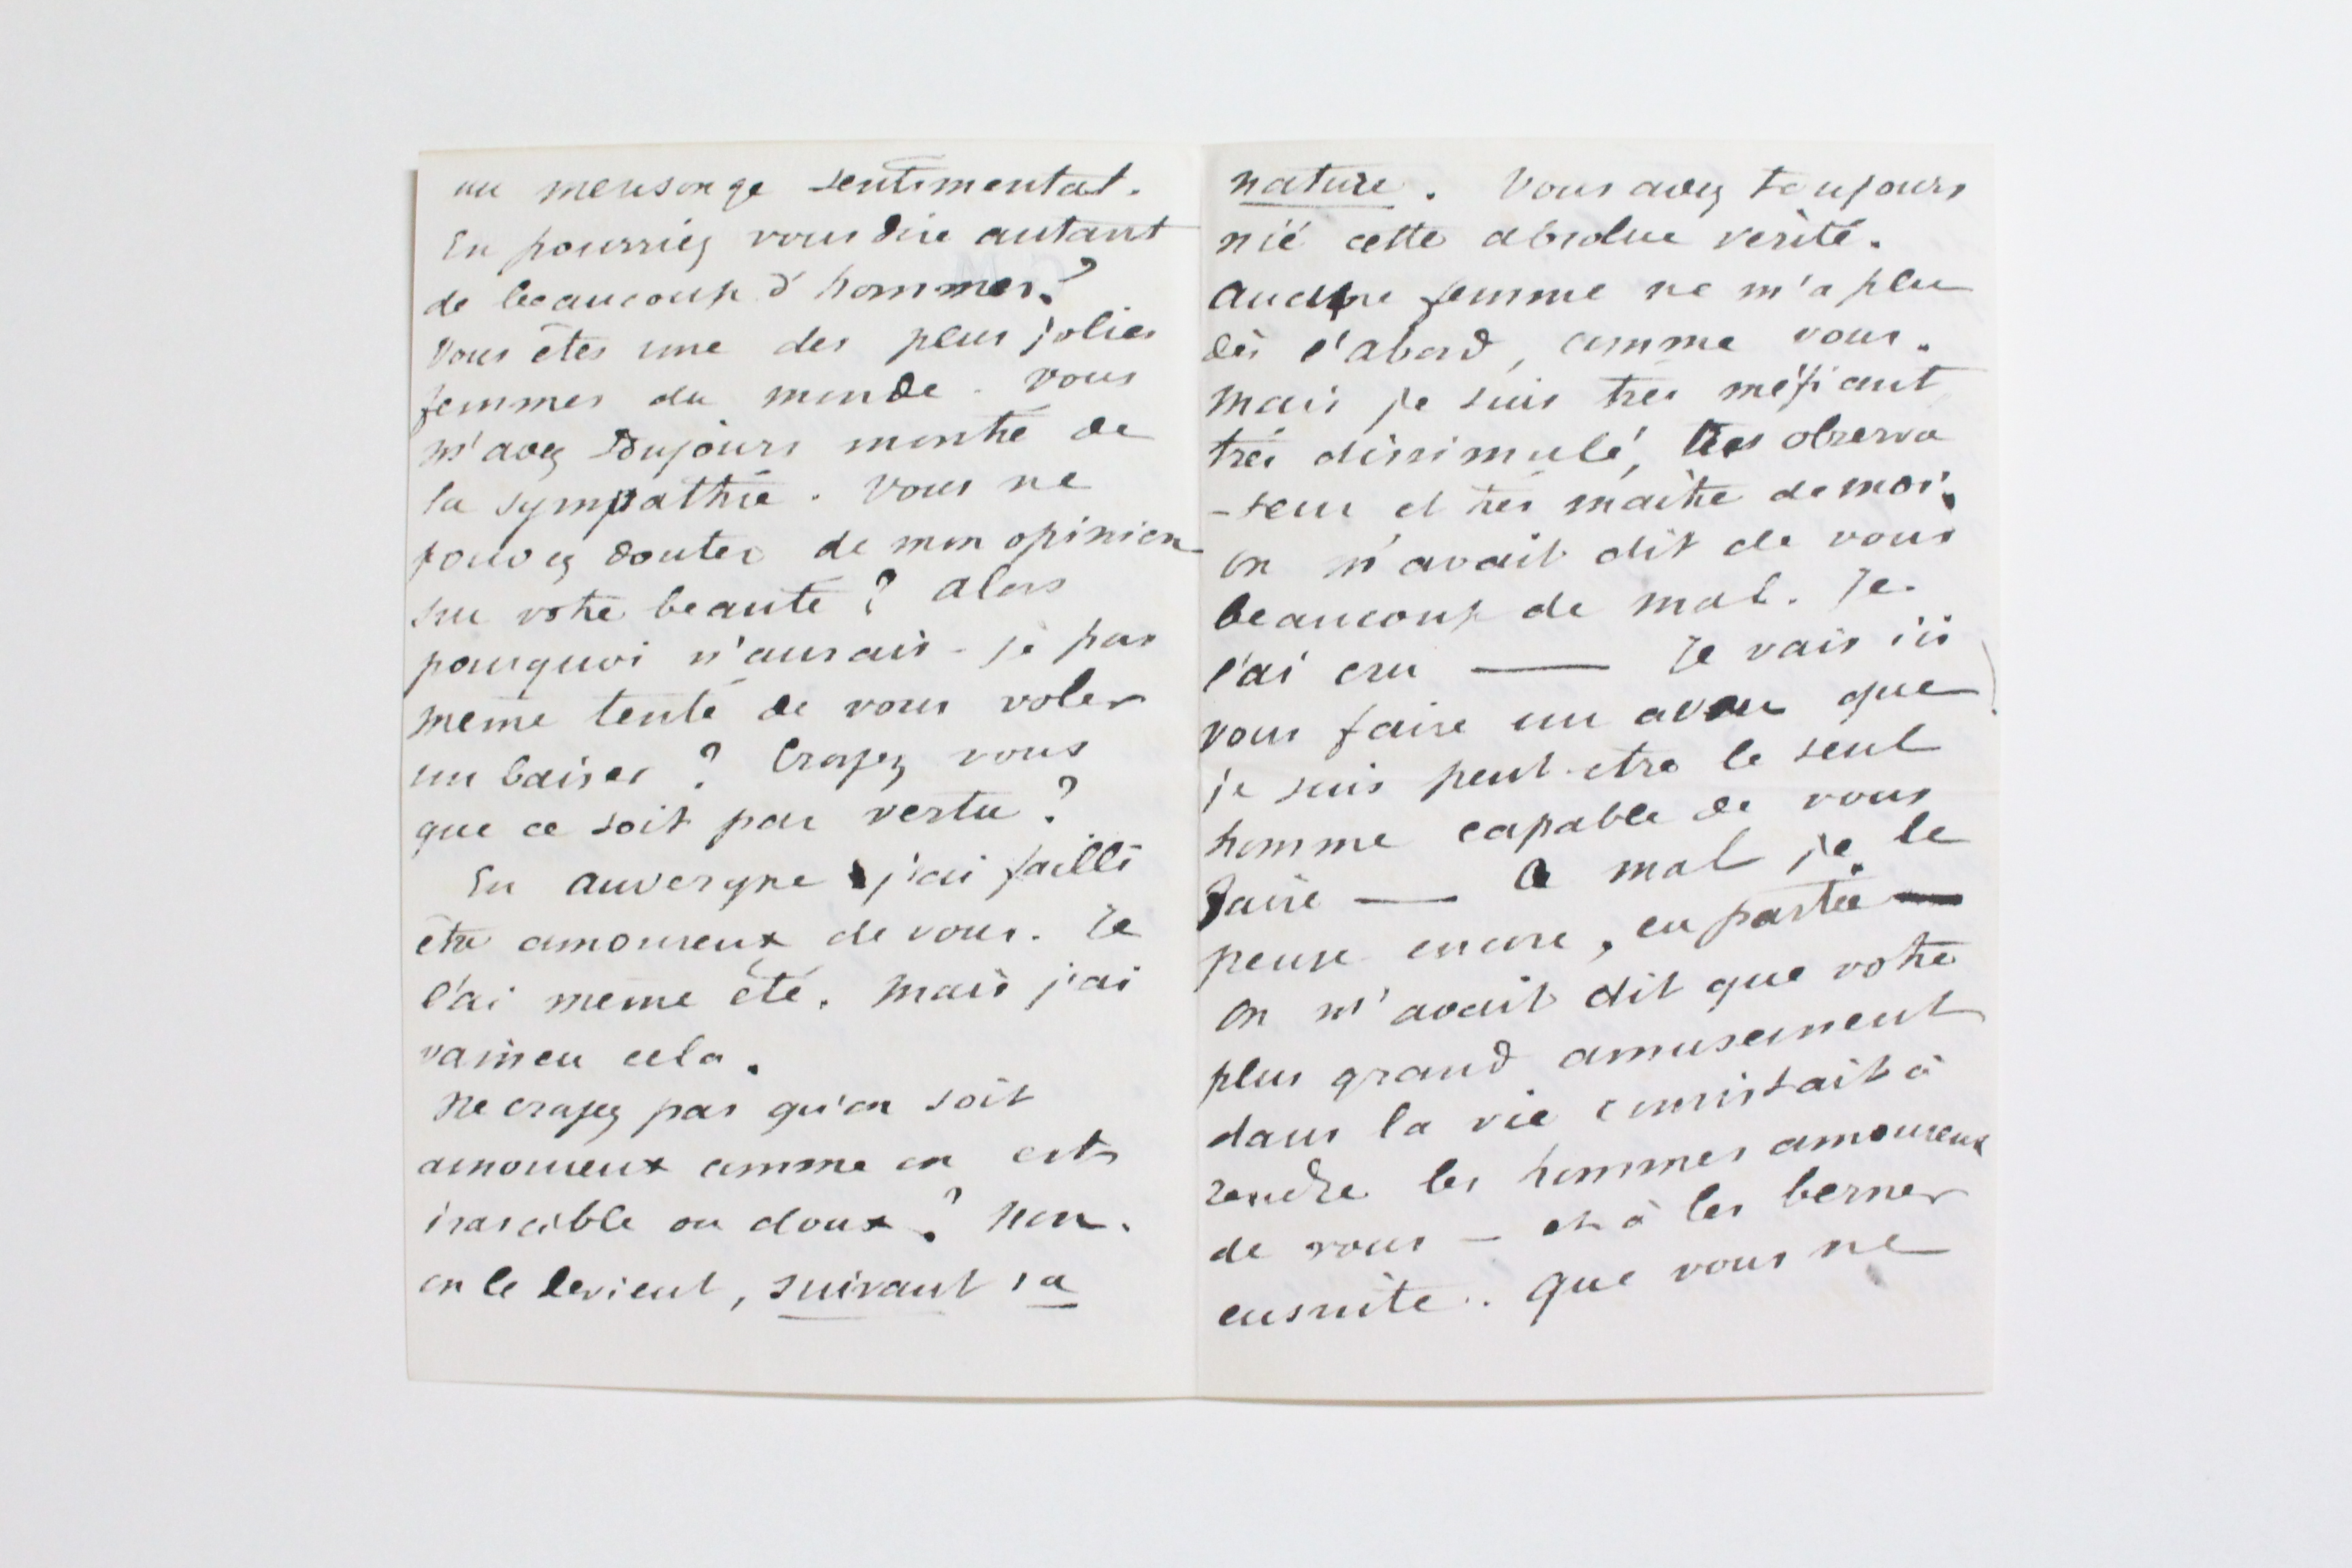 un mensonge sentimental.
En pourriez vous dire autant
de beaucoup d'hommes?
Vous êtes une des plus jolies
femmes du monde. Vous
m'avez toujours montré de
la sympathie. Vous ne
pouvez douter de mon opinion
sur votre beauté? Alors
pourquoi n'aurais-je pas
même tenté de vous voler
un baiser? Croyez vous
que ce soit par vertu?
En Auvergne j'ai failli
être amoureux de vous. Je
l'ai même été. Mais j'ai
vaincu cela.
Ne croyez pas qu'on soit
amoureux comme on est
irascible ou doux? Non.
on le devient, suivant sa
nature. Vous avez toujours
nié cette absolue vérité.
Aucune femme ne m'a plu
dès l'abord, comme vous.
Mais je suis très méfiant
très dissimulé, très observa
-teur et très maître de moi.
On m'avait dit de vous
beaucoup de mal. Je
l'ai cru — Je vais ici
vous faire un aveu que
je suis peut-être le seul
homme capable de vous
faire — Ce mal je le
pense encore, en partie —
On m'avait dit que votre
plus grand amusement
dans la vie consistait à
rendre les hommes amoureux
de vous — et à les berner
ensuite. Que vous ne